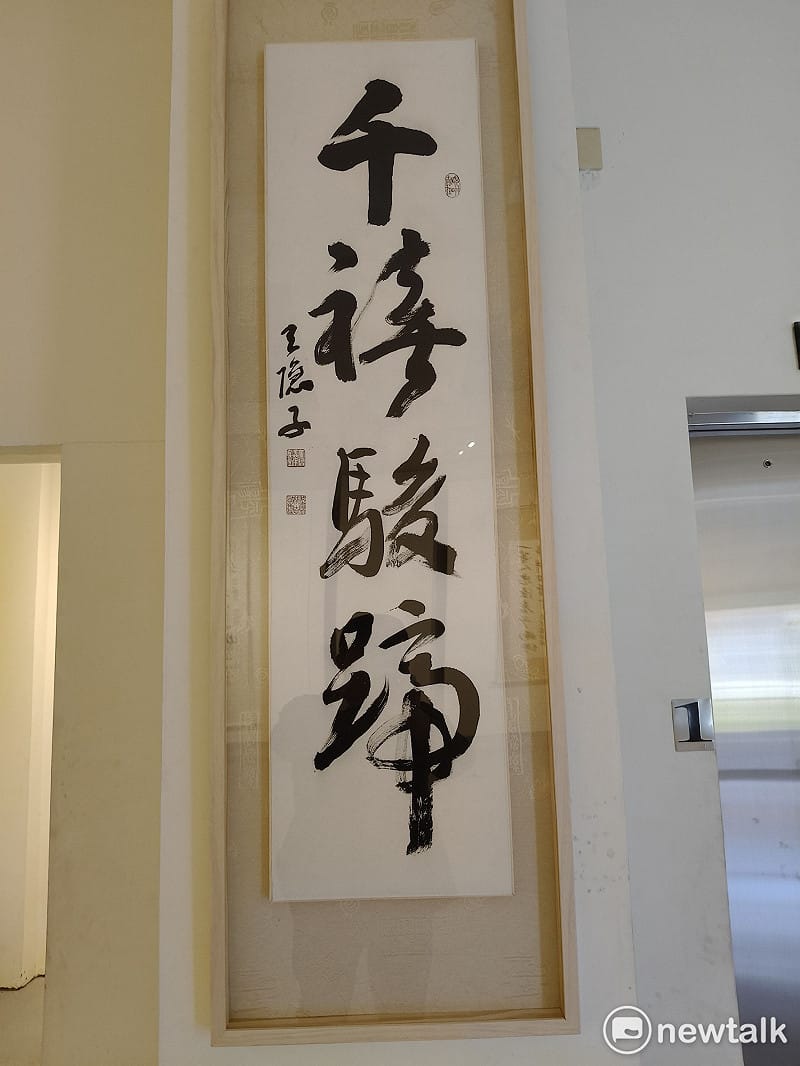 千禧駿蹄
王隱子
1
newtalk